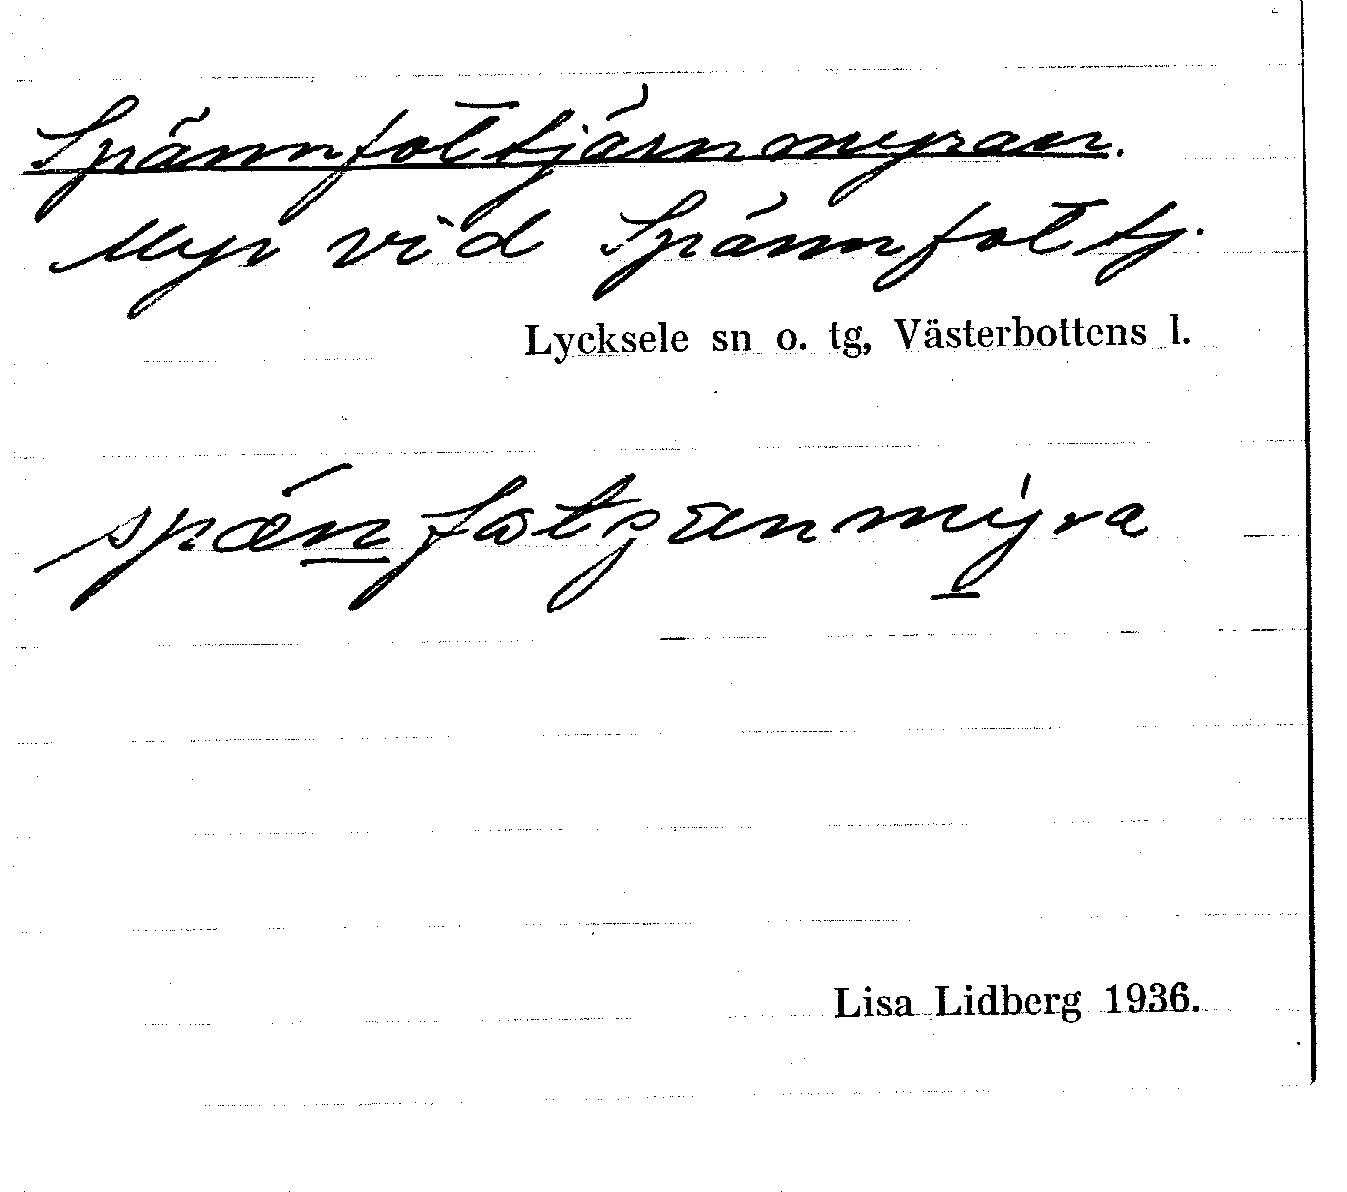 Spännfottjärnmyran.
Myr vid Spännfottj.
Lycksele sn o. tg, Västerbottens l.
Lisa Lidberg 1936.